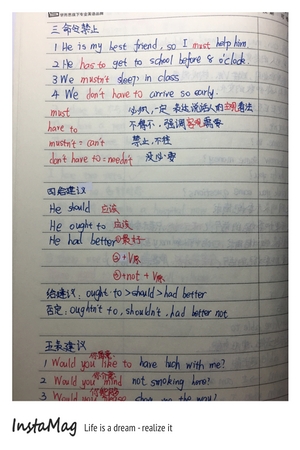 三 命令禁止
1 He is my best friend, so I must help him
2 He has to get to school before 8 o'clock.
3 We mustn't sleep in class
4 We don't have to arrive so early.
must 必须,一定 表达说话人的主观看法
have to 不得不,强调客观需要
mustn't = can't 禁止,不准
don't have to = needn't 没必要
四 给建议
He should 应该
He ought to 应该
He had better 最好
① + V原
② + not + V原
给建议: ought to > should > had better
否定: oughtn't to, shouldn't, had better not
五 表建议
1 Would you like to have lunch with me?
2 Would you mind not smoking here?
3 Would you please show me the way?
InstaMag Life is a dream - realize it